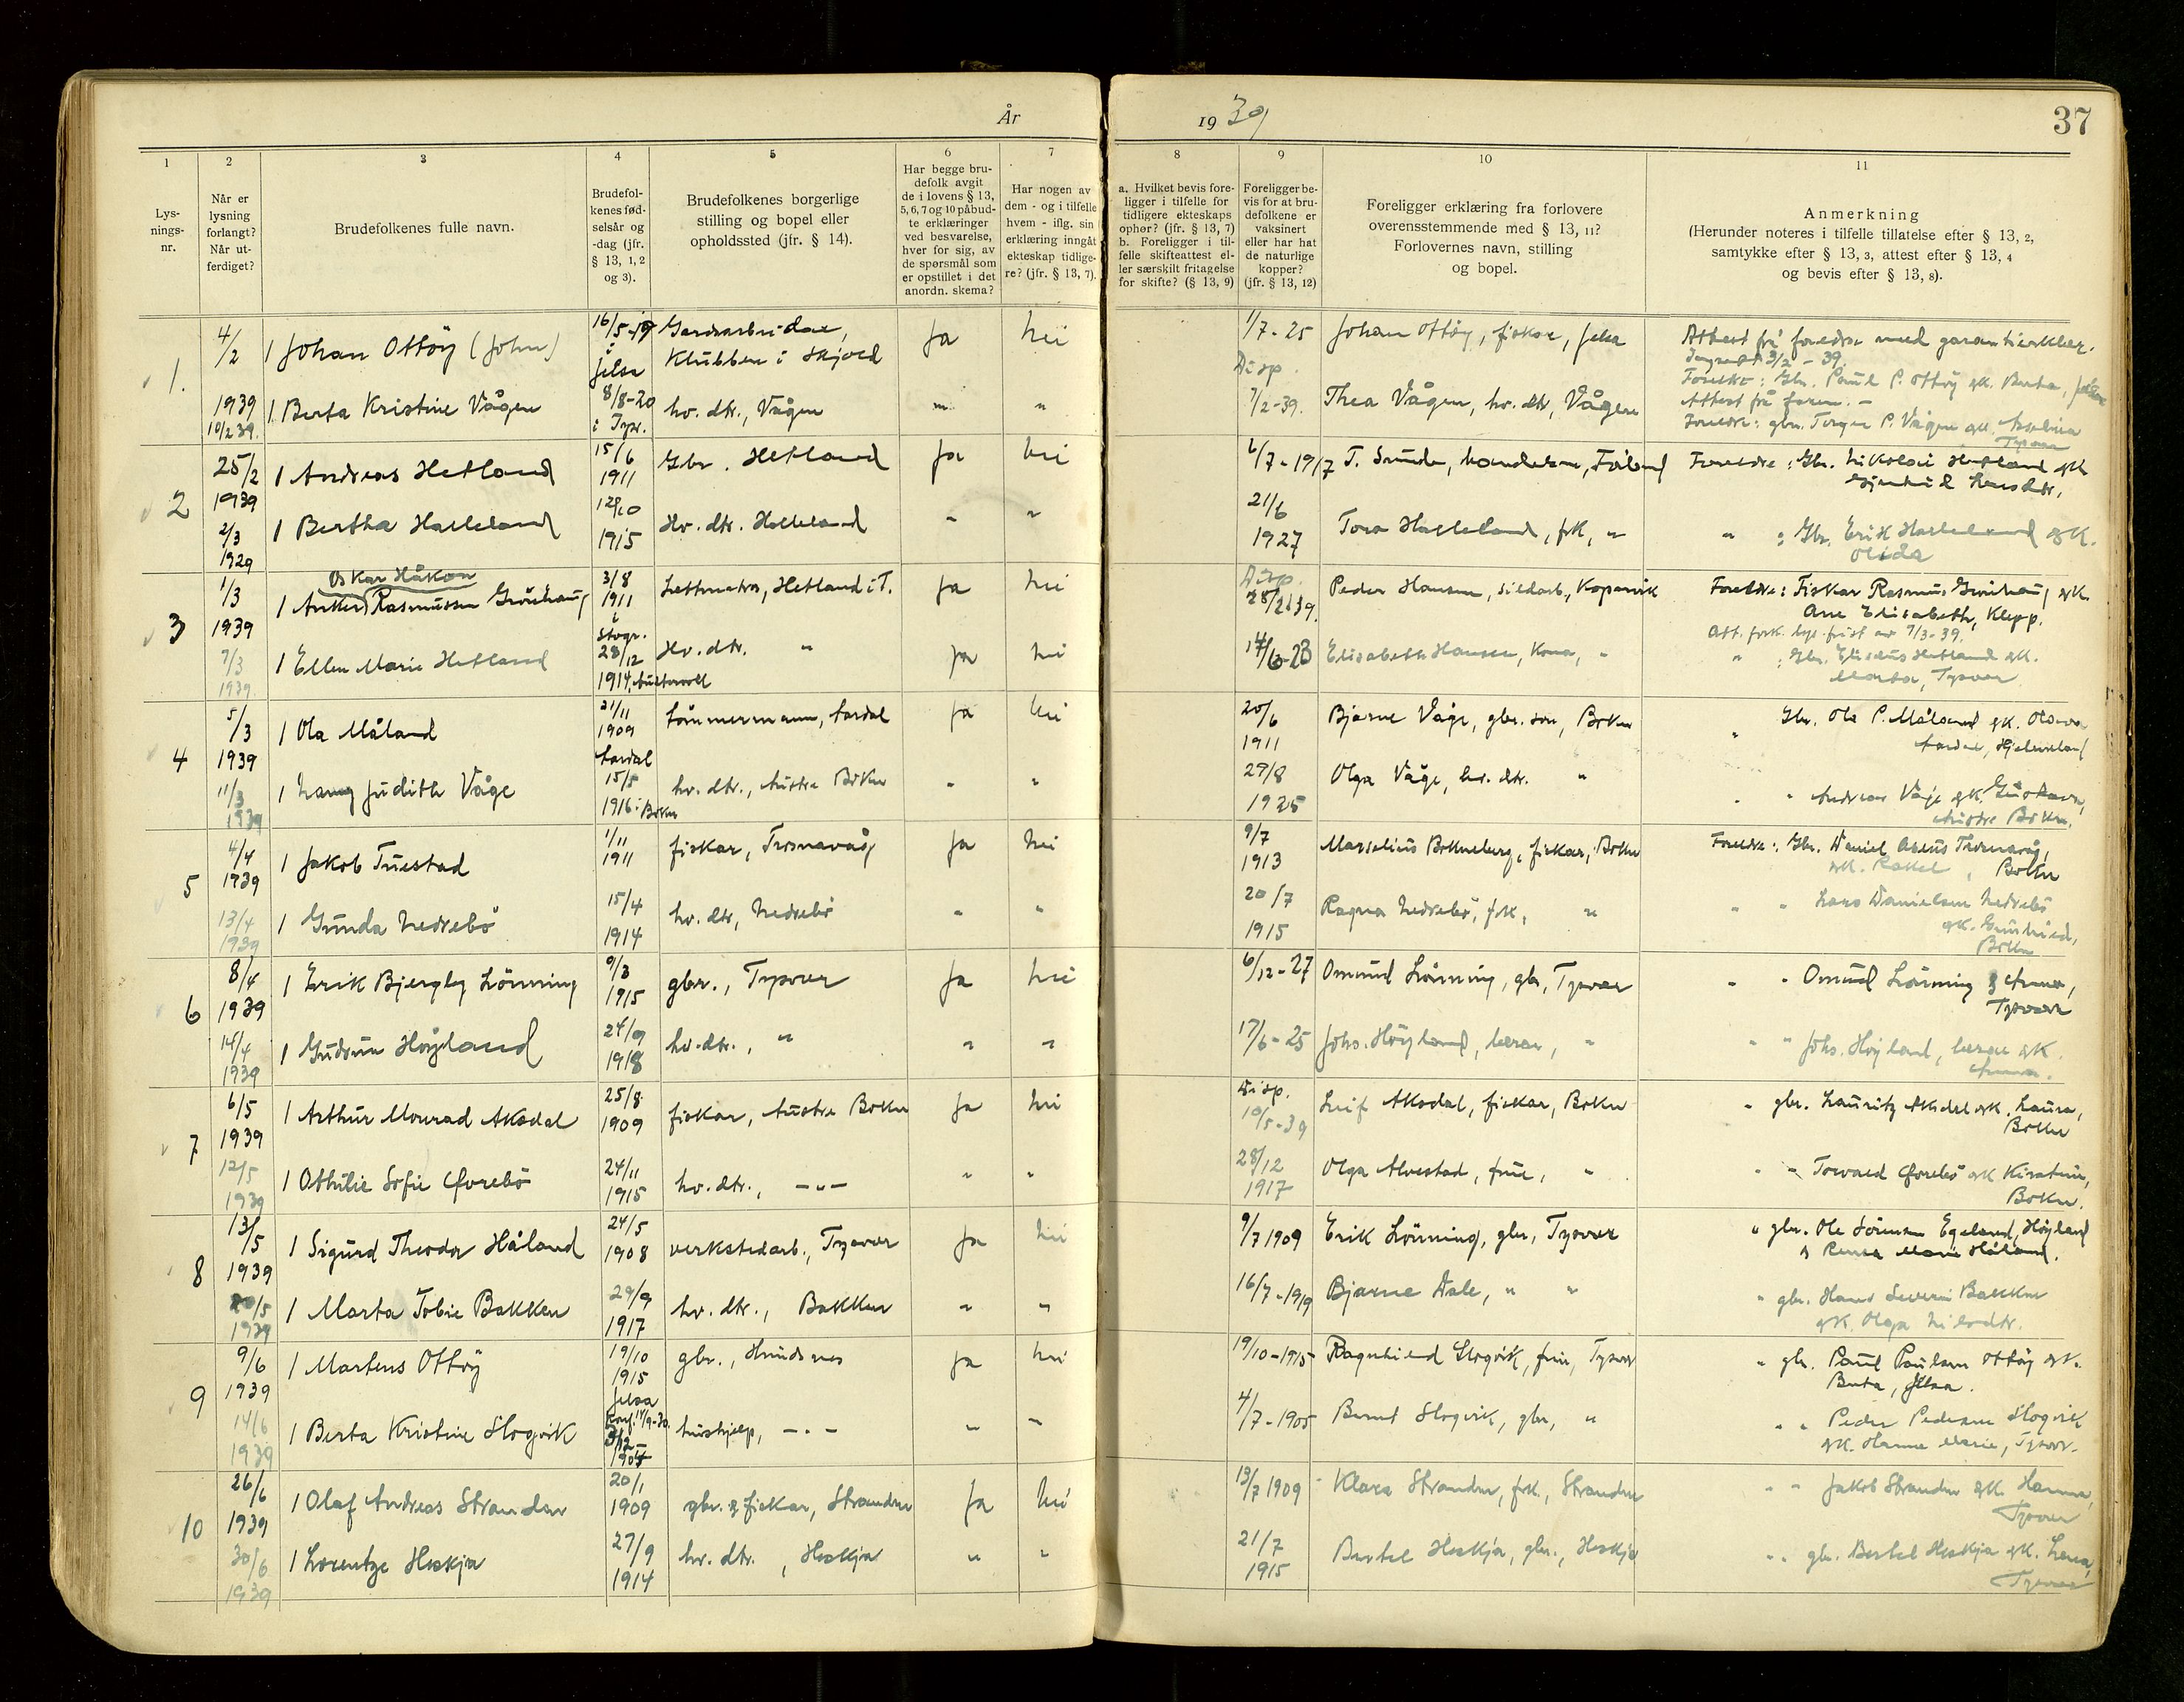 År 1939
37
1
2
3
4
5
6
7
8
9
10
11
Lys-
nings-
nr.
Når er
lysning
forlangt?
Når ut-
ferdiget?
Brudefolkenes fulle navn.
Brudefol-
kenes fød-
selsår og
-dag (jfr.
§ 13, 1, 2
og 3).
Brudefolkenes borgerlige
stilling og bopel eller
opholdssted (jfr. § 14).
Har begge bru-
defolk avgit
de i lovens § 13,
5, 6, 7 og 10 påbud-
te erklæringer
ved besvarelse,
hver for sig, av
de spørsmål som
er opstillet i det
anordn. skema?
Har nogen av
dem - og i tilfelle
hvem - iflg. sin
erklæring inngåt
ekteskap tidlige-
re? (jfr. § 13, 7).
a. Hvilket bevis fore-
ligger i tilfelle for
tidligere ekteskaps
ophør? (jfr. § 13, 7)
b. Foreligger i til-
felle skifteattest el-
ler særskilt fritagelse
for skifte? (§ 13, 9)
Foreligger be-
vis for at bru-
defolkene er
vaksinert
eller har hat
de naturlige
kopper?
(jfr. § 13, 12)
Foreligger erklæring fra forlovere
overensstemmende med § 13, 11?
Forlovernes navn, stilling
og bopel.
Anmerkning
(Herunder noteres i tilfelle tillatelse efter § 13, 2,
samtykke efter § 13, 3, attest efter § 13, 4
og bevis efter § 13, 8).
1. 4/2 1 Johan Ottøy (John) 16/5-19 i Jelsa Gardsarbeidar, Klubben i Skjold Ja nei 1/7-25 Johan Ottøy, fiskar, Jelsa Attest frå foreldre med garantierklær.
Disp. Foreldre: Gbr. Paul P. Ottøy gk. Berta, Jelsa
1939 10/2 39. 1 Berta Kristine Vågen 8/8-20 i Tysv. hv. dtr., Vågen " " 7/2-39. Thea Vågen, hv. dtr, Vågen Attest frå faren. -
Foreldre: gbr. Torger P. Vågen gk.
Tysvær
2 25/2 1939 1 Andreas Hetland 15/6 1911 Gbr. Hetland Ja nei T. Sunde, Foreldre: Gbr. Nikolai Hetland gk.
2/3 1939 1 Bertha Halleland 12/10 1915 Hv. dtr. Halleland " " 21/6 1927 Tora Halleland, frk, " " : Gbr. Erik Halleland gk.
Olida
Oskar Håkon
3 1/3 1939 1 Rasmussen 3/8 1911 i Stvgr. Hetland i T. Ja nei Disp. 28/2 39. Peder Hansen, sildarb., Kopervik Foreldre: Fiskar Rasmus gk.
Ane Elisabeth, Klepp.
7/3-39.
7/3 1939. 1 Ellen Marie Hetland 28/12 1914 Hv. dtr. " Ja nei Elisabeth Hansen, Kona, " " : Gbr. Elisæus Hetland gk.
Marta, Tysvær
4 5/3 1939 1 Ola Måland 21/11 1909 Årdal tømmermann, Årdal Ja nei 20/6 1911 Bjarne Våge, gbr. son, Bokn " Gbr. Ola P. Måland gk.
Årdal, Hjelmeland
11/3 1939 1 Nanny Judith Våge 15/5 1916 i Bokn hv. dtr., Austre Bokn " " 29/8 1925 Olga Våge, hv. dtr. " " " Andreas Våge gk. Gustava,
Austre Bokn.
5 4/4 1939 1 Jakob Tuestad 1/11 1911 fiskar, Trosnavåg Ja nei 9/7 1913 Marselius Bokneberg, fiskar, Bokn Foreldre: Gbr. Daniel
gk. Rakel, Bokn
13/4 1939 1 Gunda Nedrebø 15/4 1914 hv. dtr, Nedrebø " " 20/7 1915 Ragna Nedrebø, frk, " " " Lars Danielsen Nedrebø
gk.
Bokn
6 8/4 1939 1 Erik Bjergby Lönning 9/3 1915 gbr., Tysvær Ja nei 6/12-27 Omund Lönning, gbr, Tysvær " " Omund Lönning & Anna,
Tysvær
14/4 1939 1 Gudrun Höyland 24/9 1918 hv.dtr., " " " 17/6-25 Johs. Höyland, lærar, " " " Johs. Höyland, lærar gk.
Anna.
7 6/5 1939 1 Arthur Monrad Aksdal 25/8 1909 fiskar, Austre Bokn Ja nei Disp. 10/5-39 Leif Aksdal, fiskar, Bokn " gbr. Lauritz Aksdal gk. Laura,
Bokn
12/5 1939 1 Othilie Sofie Øvrebø 24/11 1915 hv. dtr., -"- " " 28/12 1917 Olga Alvestad, frue, " " " Torvald Øvrebø gk Kirstine,
Bokn.
8 13/5 1939 1 Sigurd Theodor Håland 24/5 1908 verkstedarb., Tysvær Ja nei 9/7 1909 Erik Lönning, gbr, Tysvær " gbr. Ole Sörensen Egeland, Höyland
& Marie Håland.
20/5 1939 1 Marta Tobie Bakken 29/9 1917 hv. dtr., Bakken " " 16/7-1919 Bjarne Dale, " " " gbr. Hans Severin Bakken
gk. Olga Nilsdtr.
9 9/6 1939 1 Martens Ottøy 19/10 1915 Jelsa gbr., Hundsnes Ja nei 19/10-1915 Ragnhild Slogvik, frue, Tysvær " gbr. Paul Paulsen Ottøy gk.
Berta, Jelsa.
14/6 1939 1 Berta Kristine Slogvik hushjelp, -"- " " 4/7-1905 Bernt Slogvik, gbr, " " " Peder Pedersen Slogvik
gk. Hanna Marie, Tysvær.
10 26/6 1939 1 Olaf Andreas Stranden 20/1 1909 gbr. & fiskar, Stranden Ja nei 13/7 1909 Klara Stranden, frk., Stranden " " Jakob Stranden gk. Hanna,
Tysvær
30/6 1939 1 Lorentze Heskja 27/9 1914 hv. dtr., Heskja " " 21/7 1915 Bertel Heskja, gbr., Heskja " " gbr. Bertel Heskja gk. Lena,
Tysvær